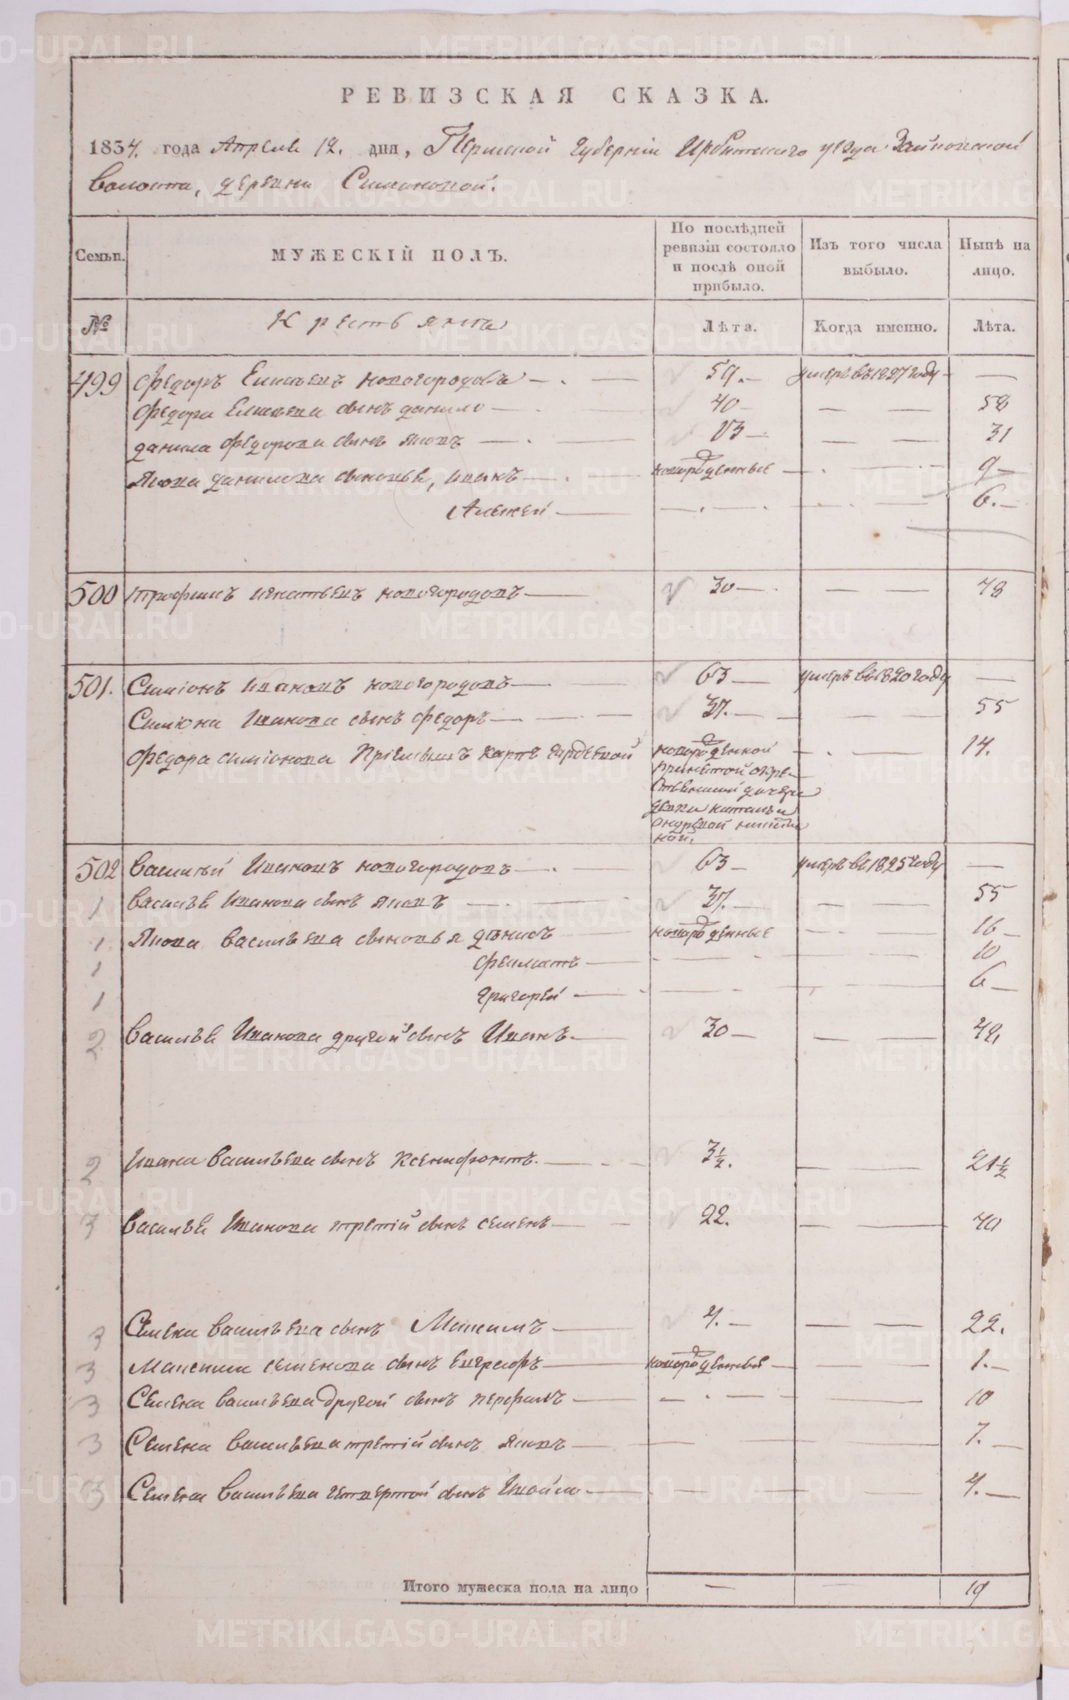 РЕВИЗСКАЯ СКАЗКА.
1834. года Апреля 12. дня, Пермской губернiи Ирбитского уезда Зайковской
волости, деревни Симановой.
Семьи. МУЖЕСКIЙ ПОЛЪ. По послѣдней ревизiи состояло и послѣ оной прибыло. Изъ того числа выбыло. Нынѣ на лицо.
№ Крестьяна Лѣта. Когда именно. Лѣта.
499 Федоръ Елисѣевъ Новогородовъ 59. умеръ въ 1827 году
Федора Елисѣева сынъ данило 40 58
данила Федорова сынъ Яковъ 13 31
Якова данилова сыновья, Иванъ новорожденные 9
Алексей 6.
500 трофимъ игнатьевъ новогородовъ 30 48
501. Симiонъ Ивановъ новогородовъ 63 умеръ въ 1820 году
Симiона Иванова сынъ федоръ 37. 55
Федора симiонова прiемышъ новорожденной 14.
502 Василей Ивановъ новогородовъ 63 умеръ въ 1825 году
1 Василья Иванова сынъ Яковъ 37. 55
1 Якова васильева сыновья денисъ новорожденные 16
1 10
1 григорей 6
2 Василья Иванова другой сынъ Иванъ 30 48
2 Ивана Васильева сынъ Ксенофонтъ 3½. 21½
3 Василья Иванова третiй сынъ семенъ 22. 40
3 Семена васильева сынъ Максимъ 4. 22.
3 Максима семенова сынъ Евграфъ новорожденные 1.
3 Семена васильева другой сынъ перфилъ 10
3 Семена васильева третiй сынъ Яковъ 7.
3 Семена васильева четвертой сынъ 4.
Итого мужеска пола на лицо 19
METRIKI.GASO-URAL.RU